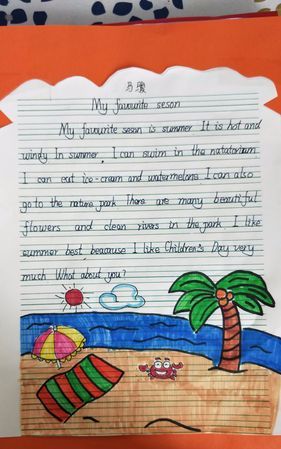 易璇
My favourite seson
My favourite seson is summer. It is hot and
windy. In summer, I can swim in the natatorium.
I can eat ice-cream and watermelons. I can also
go to the nature park. There are many beautiful
flowers and clean rivers in the park. I like
summer best, beacause I like Children's Day very
much. What about you?